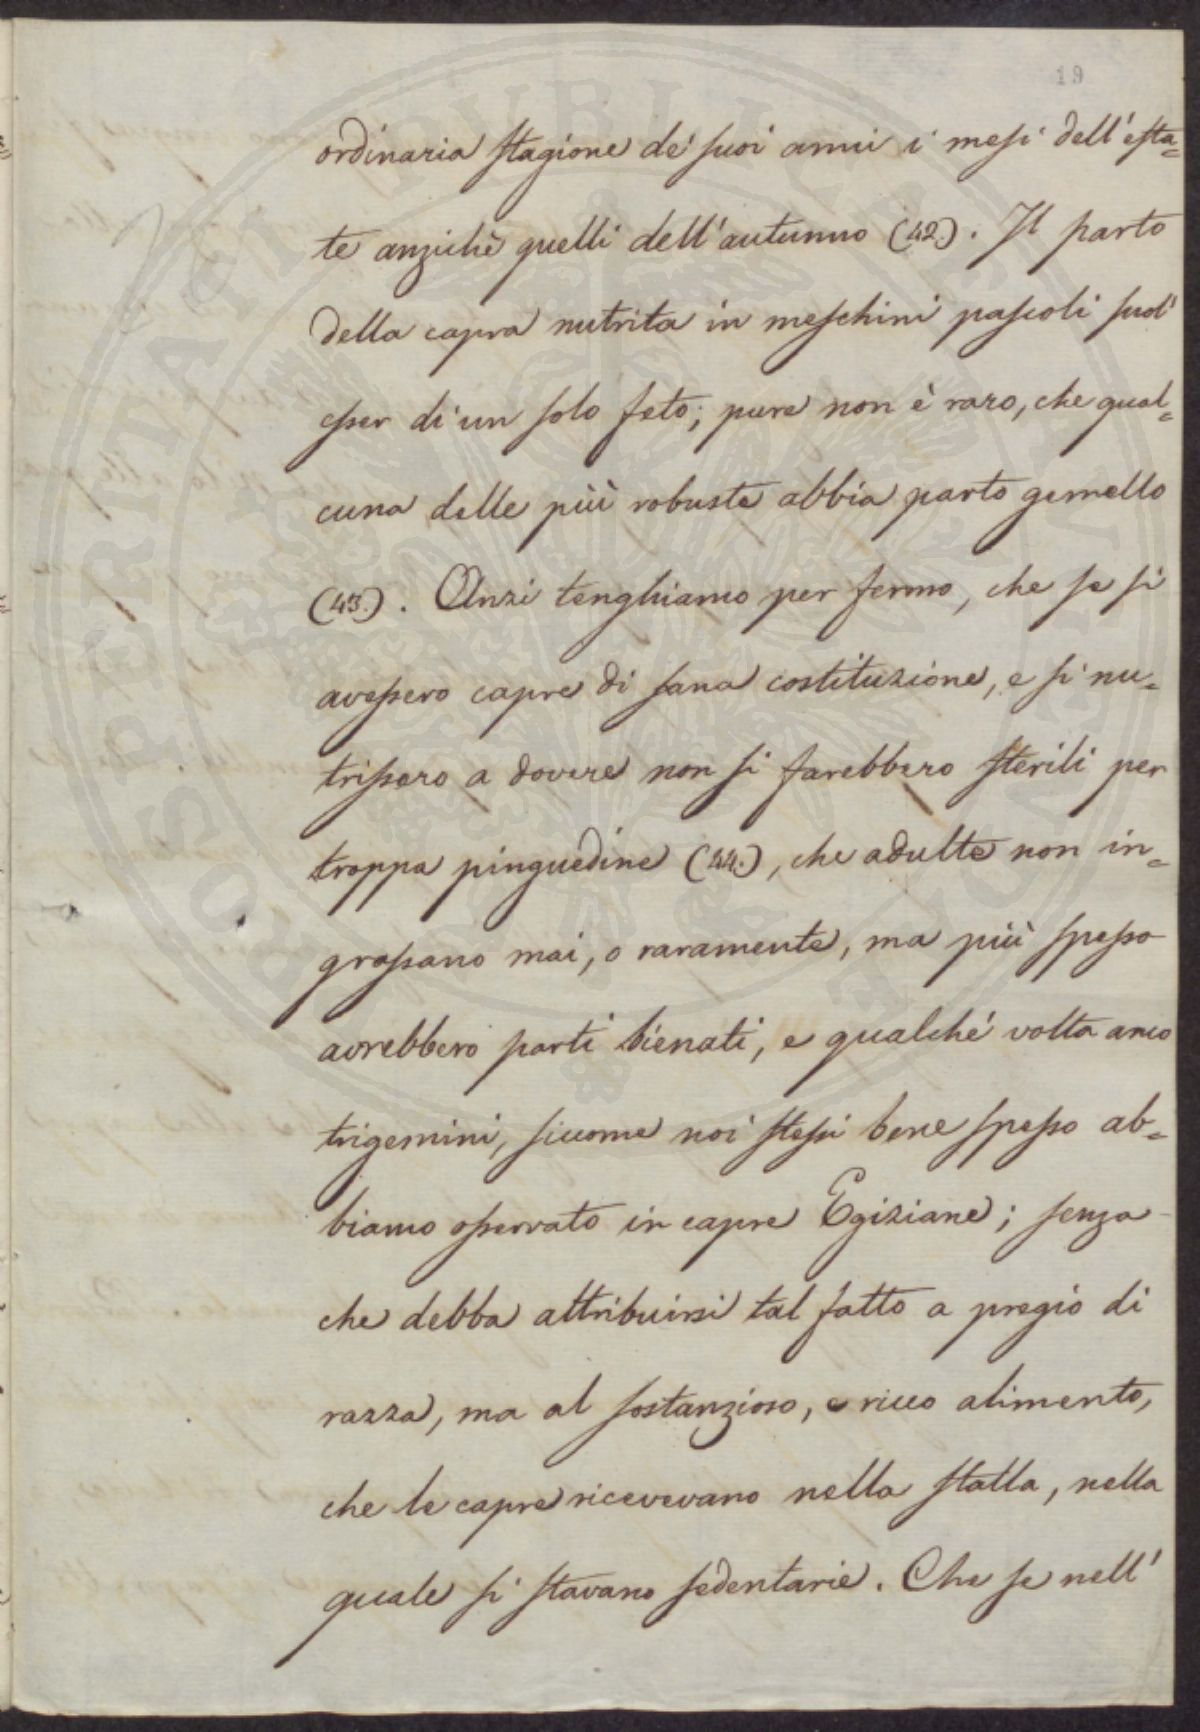 19
ordinaria stagione de' suoi amui i mesi dell'esta=
te anzichè quelli dell'autunno (42.). Il parto
della capra nutrita in meschini pascoli suol'
esser di un solo feto; pure non è raro, che qual=
cuna delle più robuste abbia parto gemello
(43.). Anzi tenghiamo per fermo, che se si
avessero capre di sana costituzione, e si nu=
trissero a dovere non si farebbero sterili per
troppa pinguedine (44.), che adulte non in=
grossano mai, o raramente, ma più spesso
avrebbero parti bienati, e qualche volta anco
trigemini, siccome noi stessi bene spesso ab=
biamo osservato in capre Egiziane; senza
che debba attribuirsi tal fatto a pregio di
razza, ma al sostanzioso, e ricco alimento,
che le capre ricevevano nella stalla, nella
quale si stavano sedentarie. Che se nell'
PROSPERITATI PUBLICAE AUGENDAE